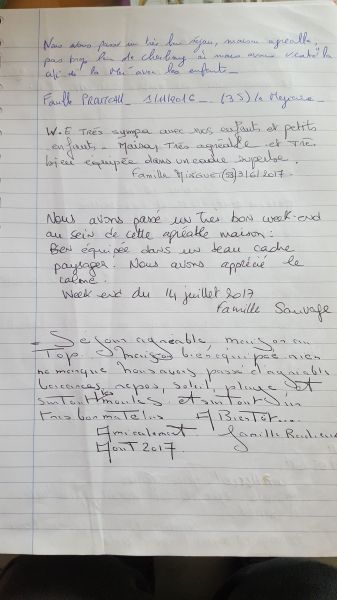 Nous avons passé un très bon séjour, maison agréable,
pas trop loin de cherbourg où nous avons visité la
cité de la Mer avec les enfants -
Famille 1/11/2016 - (35)
W.E Très sympa avec nos enfants et petits
enfants - Maison Très agréable et Très
bien équipée dans un cadre superbe.
Famille (53) 3/6/2017.
Nous avons passé un très bon week-end
au sein de cette agréable maison :
Bien équipée dans un beau cadre
paysager. Nous avons apprécié le
calme.
Week end du 14 juillet 2017
Famille Sauvage
- Sejour agréable, maison au
Top. bien equipée rien
ne manque nous ayons passé d'agréable
vacances, repos, soleil, plage et
surtout les moules. et surtout un
tres bon matelas. A Bientôt...
Amicalement. famille
Aout 2017.